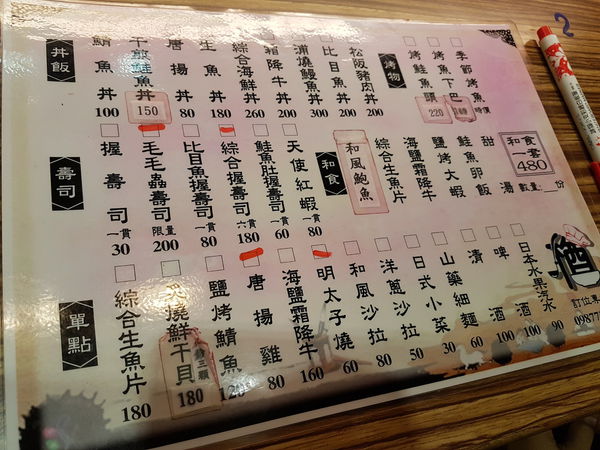 丼飯
鯖魚丼 100
干部鮭魚丼 150
唐揚丼 80
生魚丼 180
綜合海鮮丼 260
霜降牛丼 200
蒲燒鰻魚丼 300
比目魚丼 200
松阪豬肉丼 200
烤物
烤鮭魚頭 220
烤魚下巴
季節烤魚 時價
壽司
握壽司 一貫 30
毛毛蟲壽司 限量 200
比目魚握壽司 一貫 80
綜合握壽司 六貫 180
鮭魚肚握壽司 一貫 60
天使紅蝦 一貫 80
和食
和風鮑魚
綜合生魚片
海鹽霜降牛
鹽烤大蝦
鮭魚卵飯
甜湯
和食一客 480
數量: 份
單點
綜合生魚片 180
炙燒鮮干貝 三顆 180
鹽烤鯖魚 120
唐揚雞 80
海鹽霜降牛 160
明太子燒 60
和風沙拉 80
洋蔥沙拉 50
日式小菜 30
山藥細麵 60
清酒 100
啤酒 100
日本水果汽水 90
酒
訂位專
09877
2